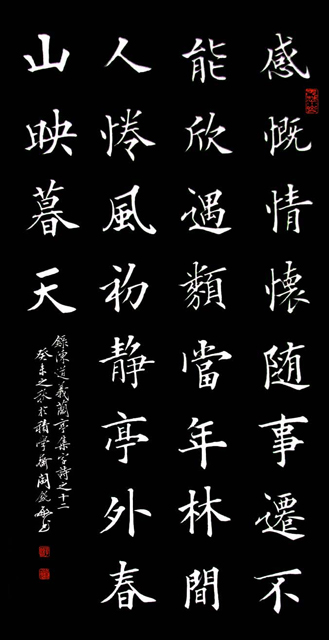 感慨情懷随事遷不
能欣遇類當年林間
人惓風初静亭外春
山映暮天
錄陳道義蘭亭集字詩之十二
癸未之秋於積學齋